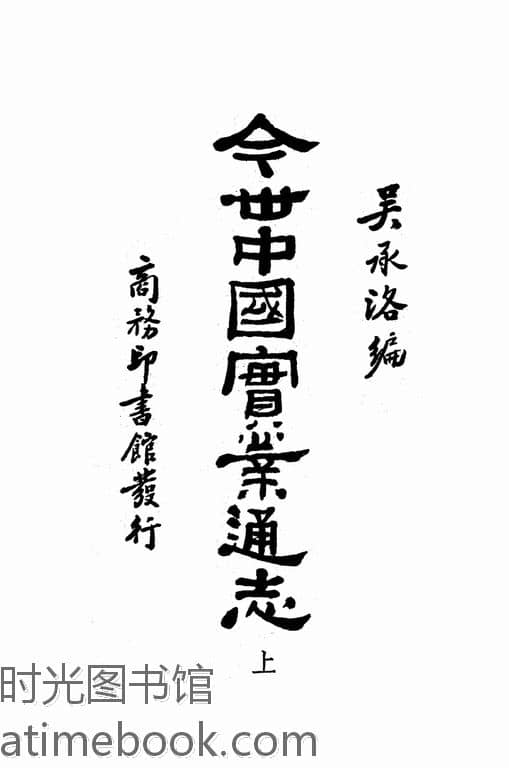 吴承洛編
今世中國實業通志
上
商務印書館發行
时光图书馆
atimebook.com